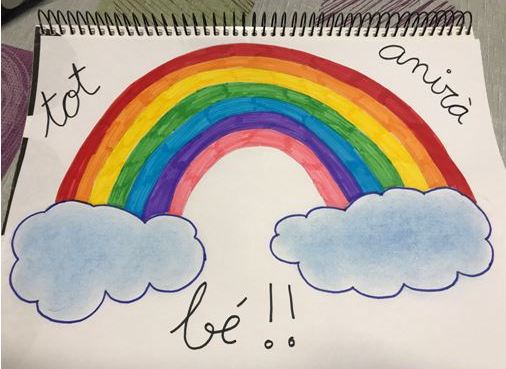 tot
anirà
bé!!